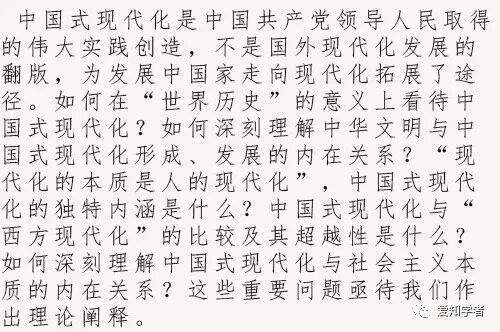 中国式现代化是中国共产党领导人民取得
的伟大实践创造，不是国外现代化发展的
翻版，为发展中国家走向现代化拓展了途
径。如何在“世界历史”的意义上看待中
国式现代化？如何深刻理解中华文明与中
国式现代化形成、发展的内在关系？“现
代化的本质是人的现代化”，中国式现代
化的独特内涵是什么？中国式现代化与“
西方现代化”的比较及其超越性是什么？
如何深刻理解中国式现代化与社会主义本
质的内在关系？这些重要问题亟待我们作
出理论阐释。
爱知学者